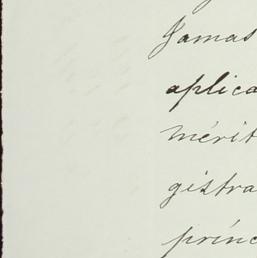 Jamas
aplica
mérit
gistra
princ